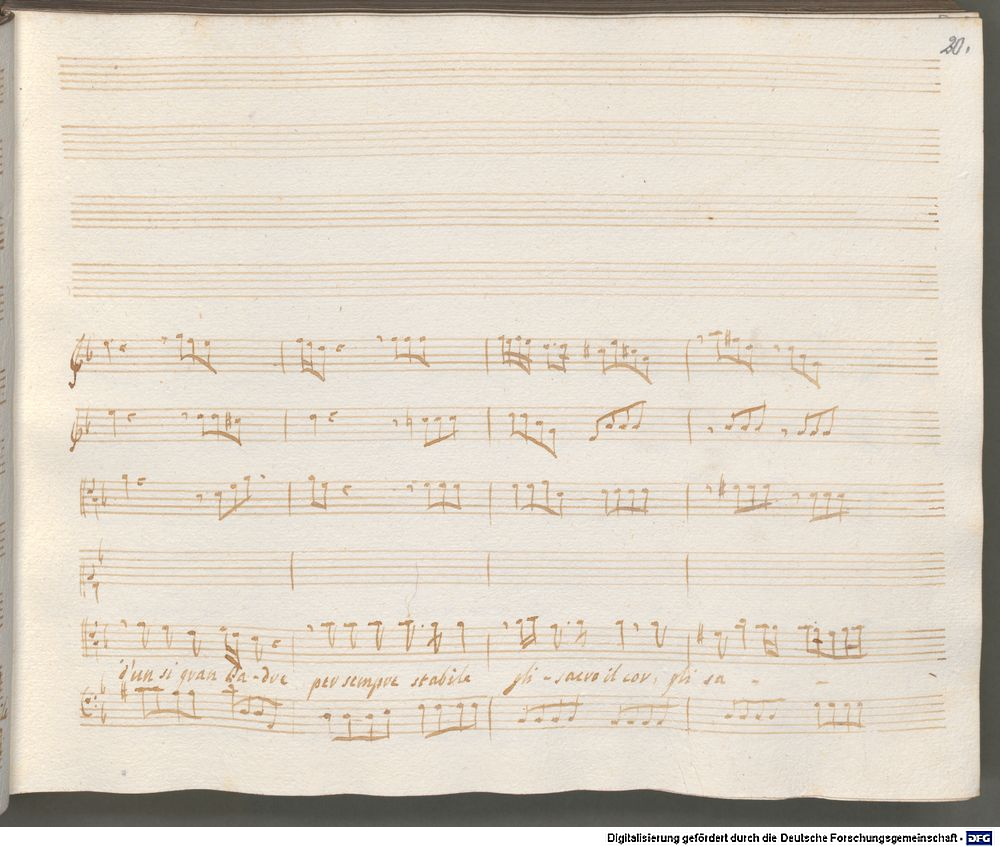 20.
d'un si gran Pa-dre per sempre stabile gli-sacro il cor, gli sa - -
Digitalisierung gefördert durch die Deutsche Forschungsgemeinschaft - DFG